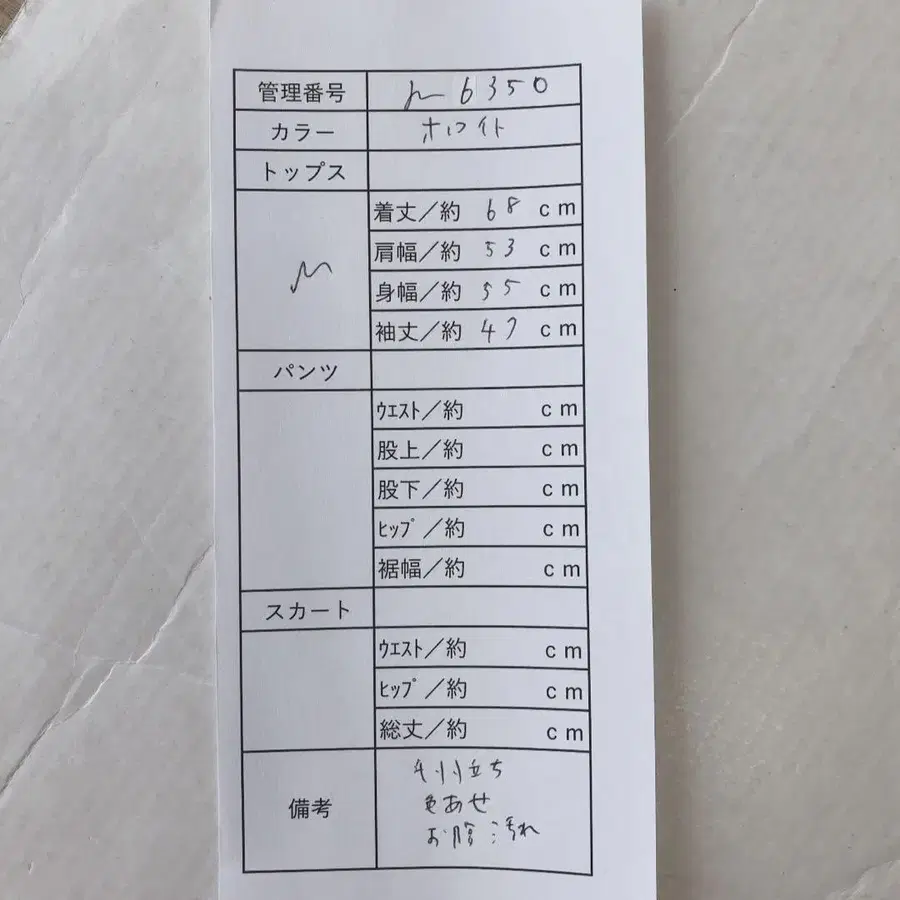 管理番号 m6350
カラー ホワイト
トップス
M
着丈／約 68 cm
肩幅／約 53 cm
身幅／約 55 cm
袖丈／約 47 cm
パンツ
ウエスト／約 cm
股上／約 cm
股下／約 cm
ヒップ／約 cm
裾幅／約 cm
スカート
ウエスト／約 cm
ヒップ／約 cm
総丈／約 cm
備考
毛羽立ち
色あせ
お腹汚れ